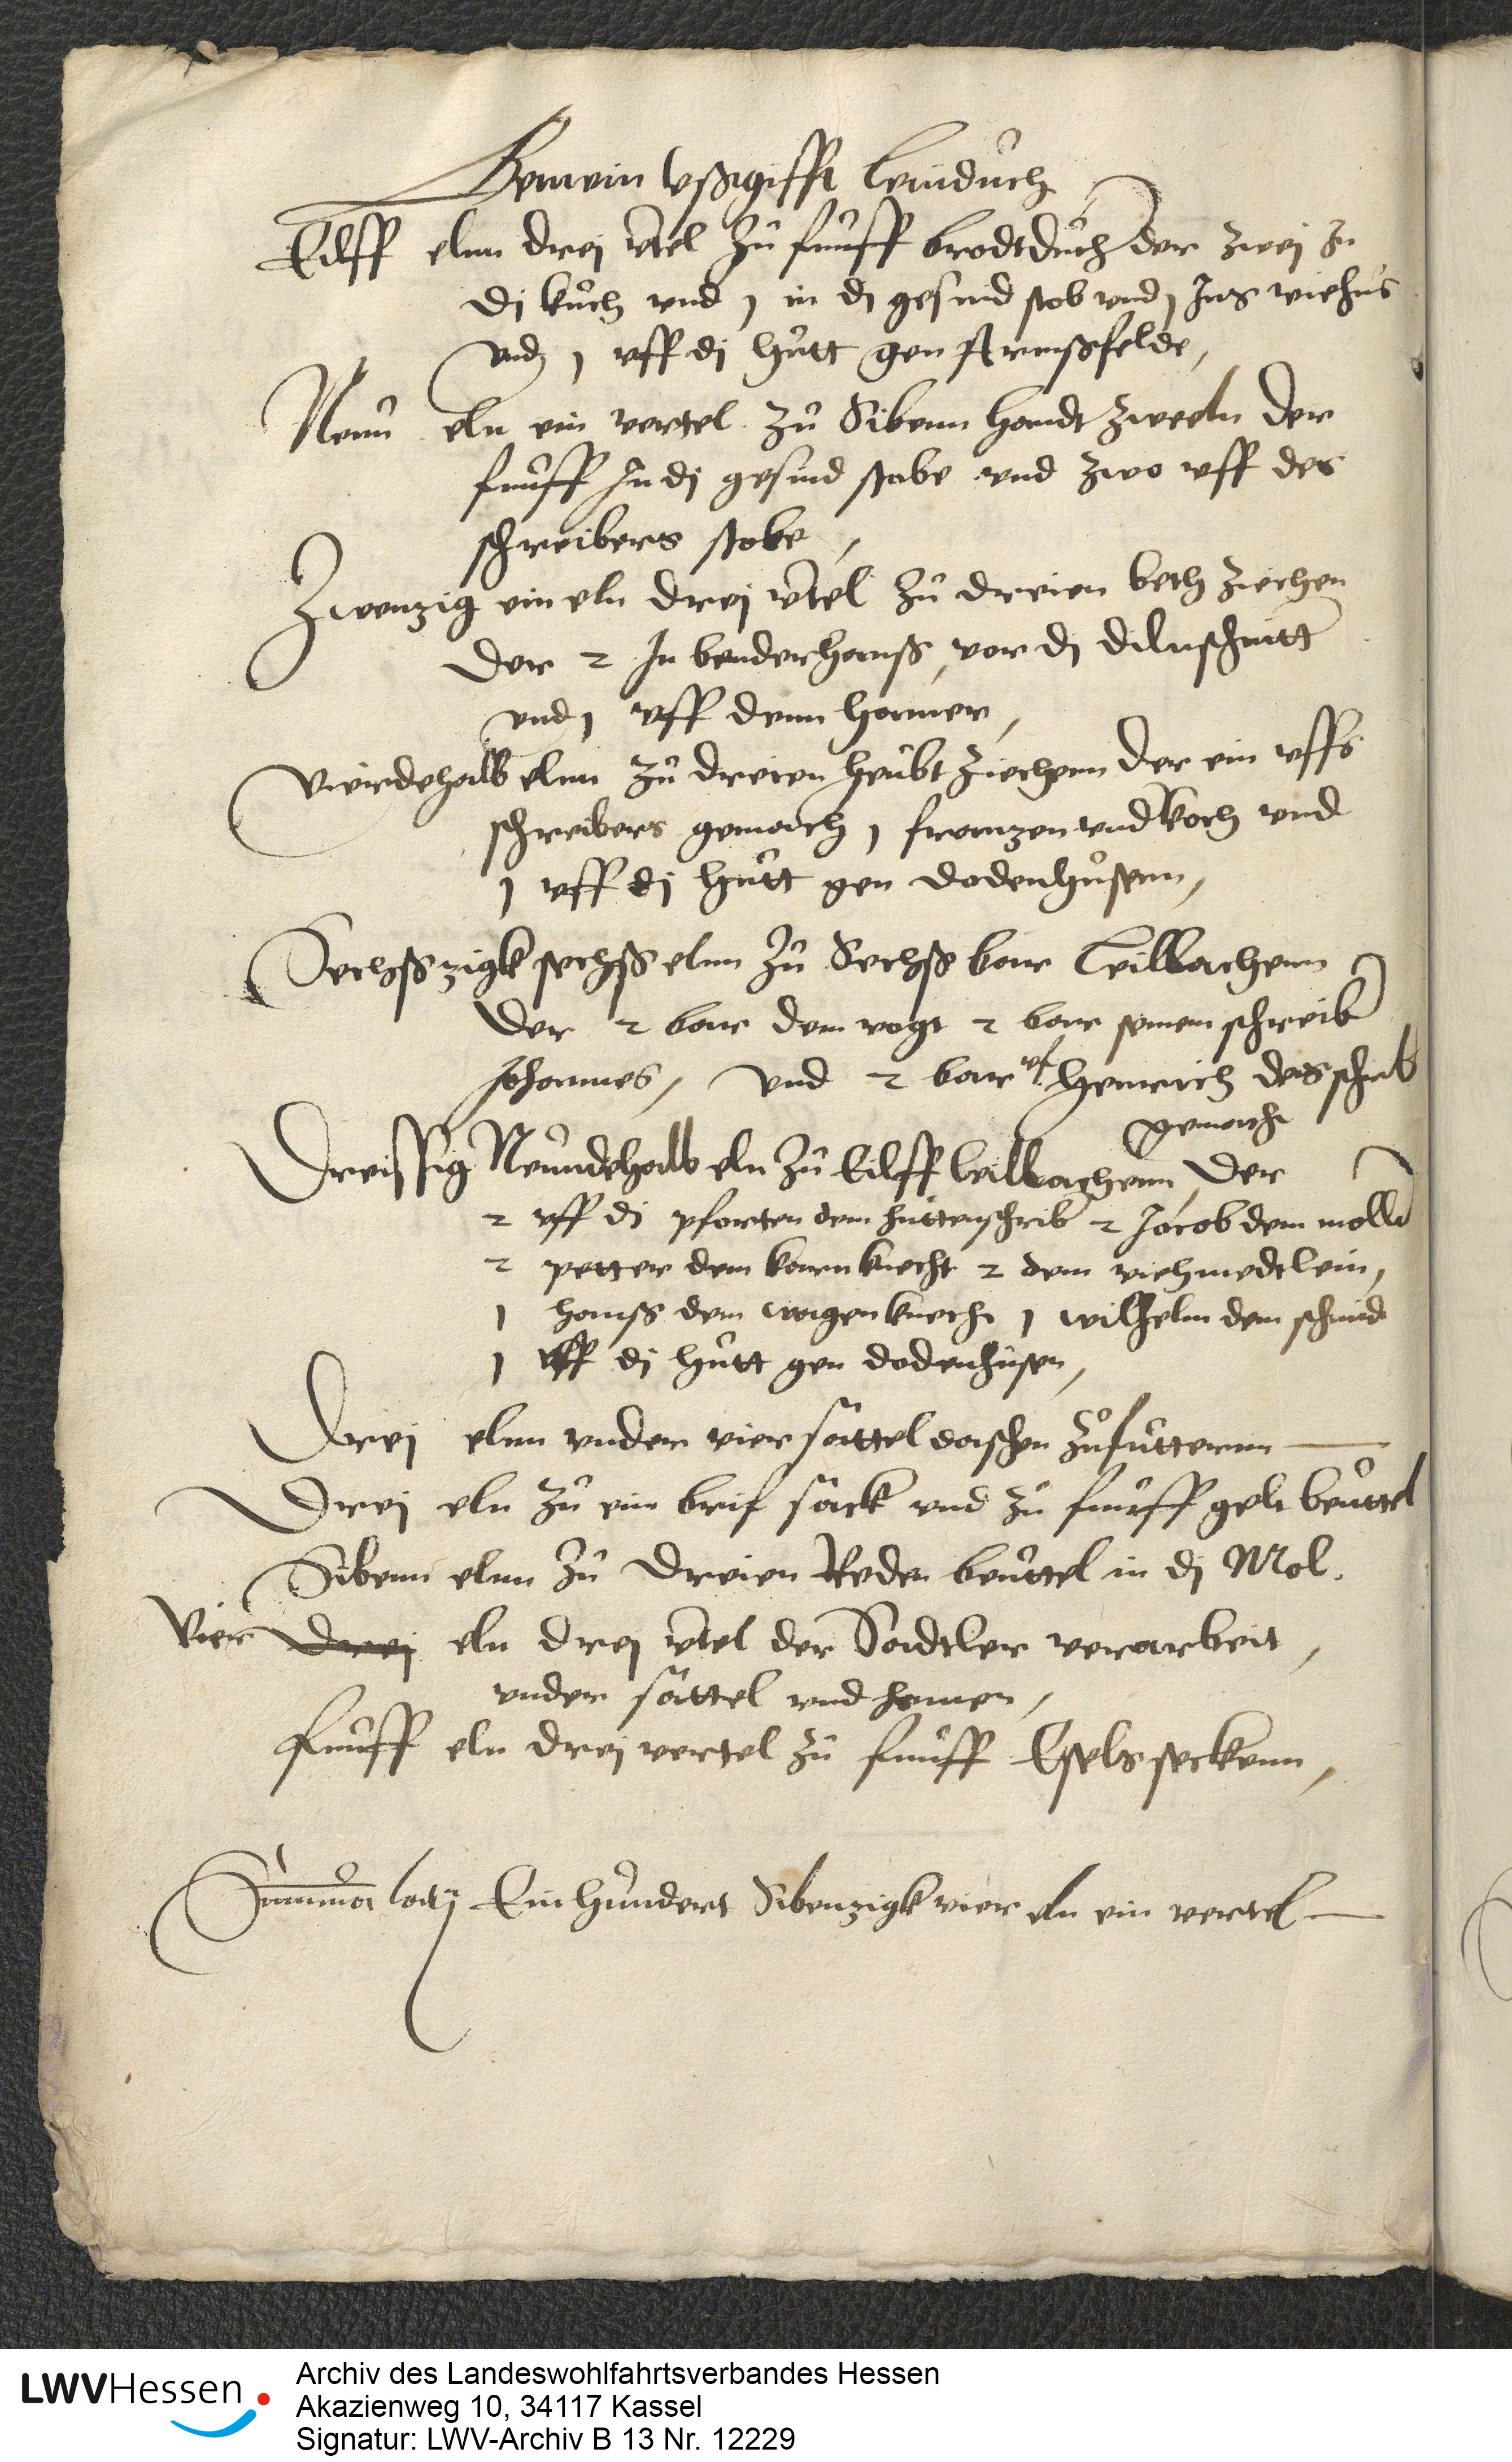 Gemein vßgifft leinduch
Eilff elnn drej v̄tel zu funff brodtduch der zwej In
dj kuch vnd j in dj gesind stob vnd j Ins viehus
vnd j vff dj hutt gen Armßfelde,
Neun eln ein vertel zu Sibenn handt zweeln der
funff In dj gesind stobe vnd zwo vff des
schreibers stobe,
Zwenzig ein eln drej v̄tel zu dreien beth ziechen
der 2 In benderhauß, vor dj dilnschnitt
vnd j vff denn hamer,
Vierdehalb elnn zu dreien heubt ziechenn der ein vffs
schreibers gemach j franzen vnd koch vnd
j vff dj hutt gen dodenhusenn,
Sechßzigk sechß elnn zu Sechß bar leillachenn
der 2 bar dem vogt 2 bar seinem schreib
Johannes, vnd 2 bar vf Henrich des schrib
gemach
Dreissig Neundehalb eln zu Eilff leillachenn, der
2 vff dj pforten dem huttenschrib 2 Jacob dem moller
2 petter dem karnknecht 2 dem viehmedtlein,
j hanß dem wagenknecht j wilhelm dem schmid
j vff dj hutt gen dodenhusen,
Drej elnn vnder vier sattel daschen zufutternn
Drej eln zu ein brif sack vnd zu funff gelt beuttel
Sibenn elnn zu dreien Reden beuttel in dj Mol.
Vier drej eln drej v̄tel der Sadtler verarbeit,
vnder sattel vnd hamen,
funff eln drej vertel zu funff Esels seckenn,
Summa latj Einhundert Sibenzigk vier eln ein vertel
LWVHessen
Archiv des Landeswohlfahrtsverbandes Hessen
Akazienweg 10, 34117 Kassel
Signatur: LWV-Archiv B 13 Nr. 12229